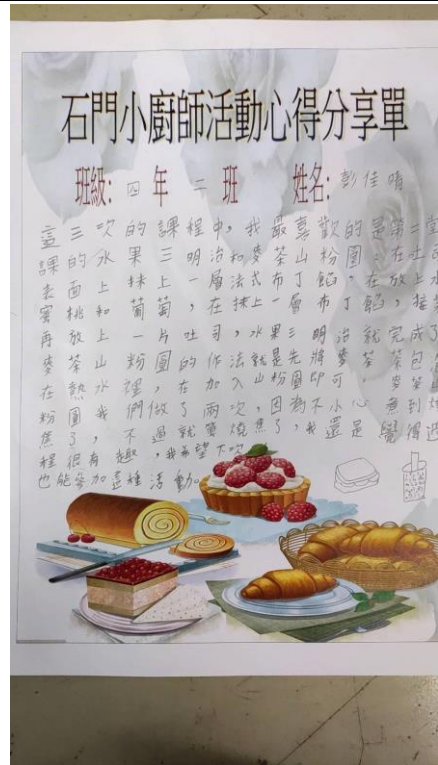 石門小廚師活動心得分享單
班級:四年二班 姓名:彭佳晴
這三次的課程中,我最喜歡的是第三堂
課的水果三明治和麥茶山粉圓。在吐司
表面上抹上一層法式布丁餡,在放上水
蜜桃和葡萄,在抹上一層布丁餡,接
再放上一片吐司,水果三明治就完成了
麥茶山粉圓的作法就是先將麥茶茶包
在熱水裡,在加入山粉圓即可,麥茶
粉圓我們做了兩次,因為不小心煮到燒
焦了,不過就算燒焦了,我還是覺得過
程很有趣,我希望下次
也能參加這種活動。